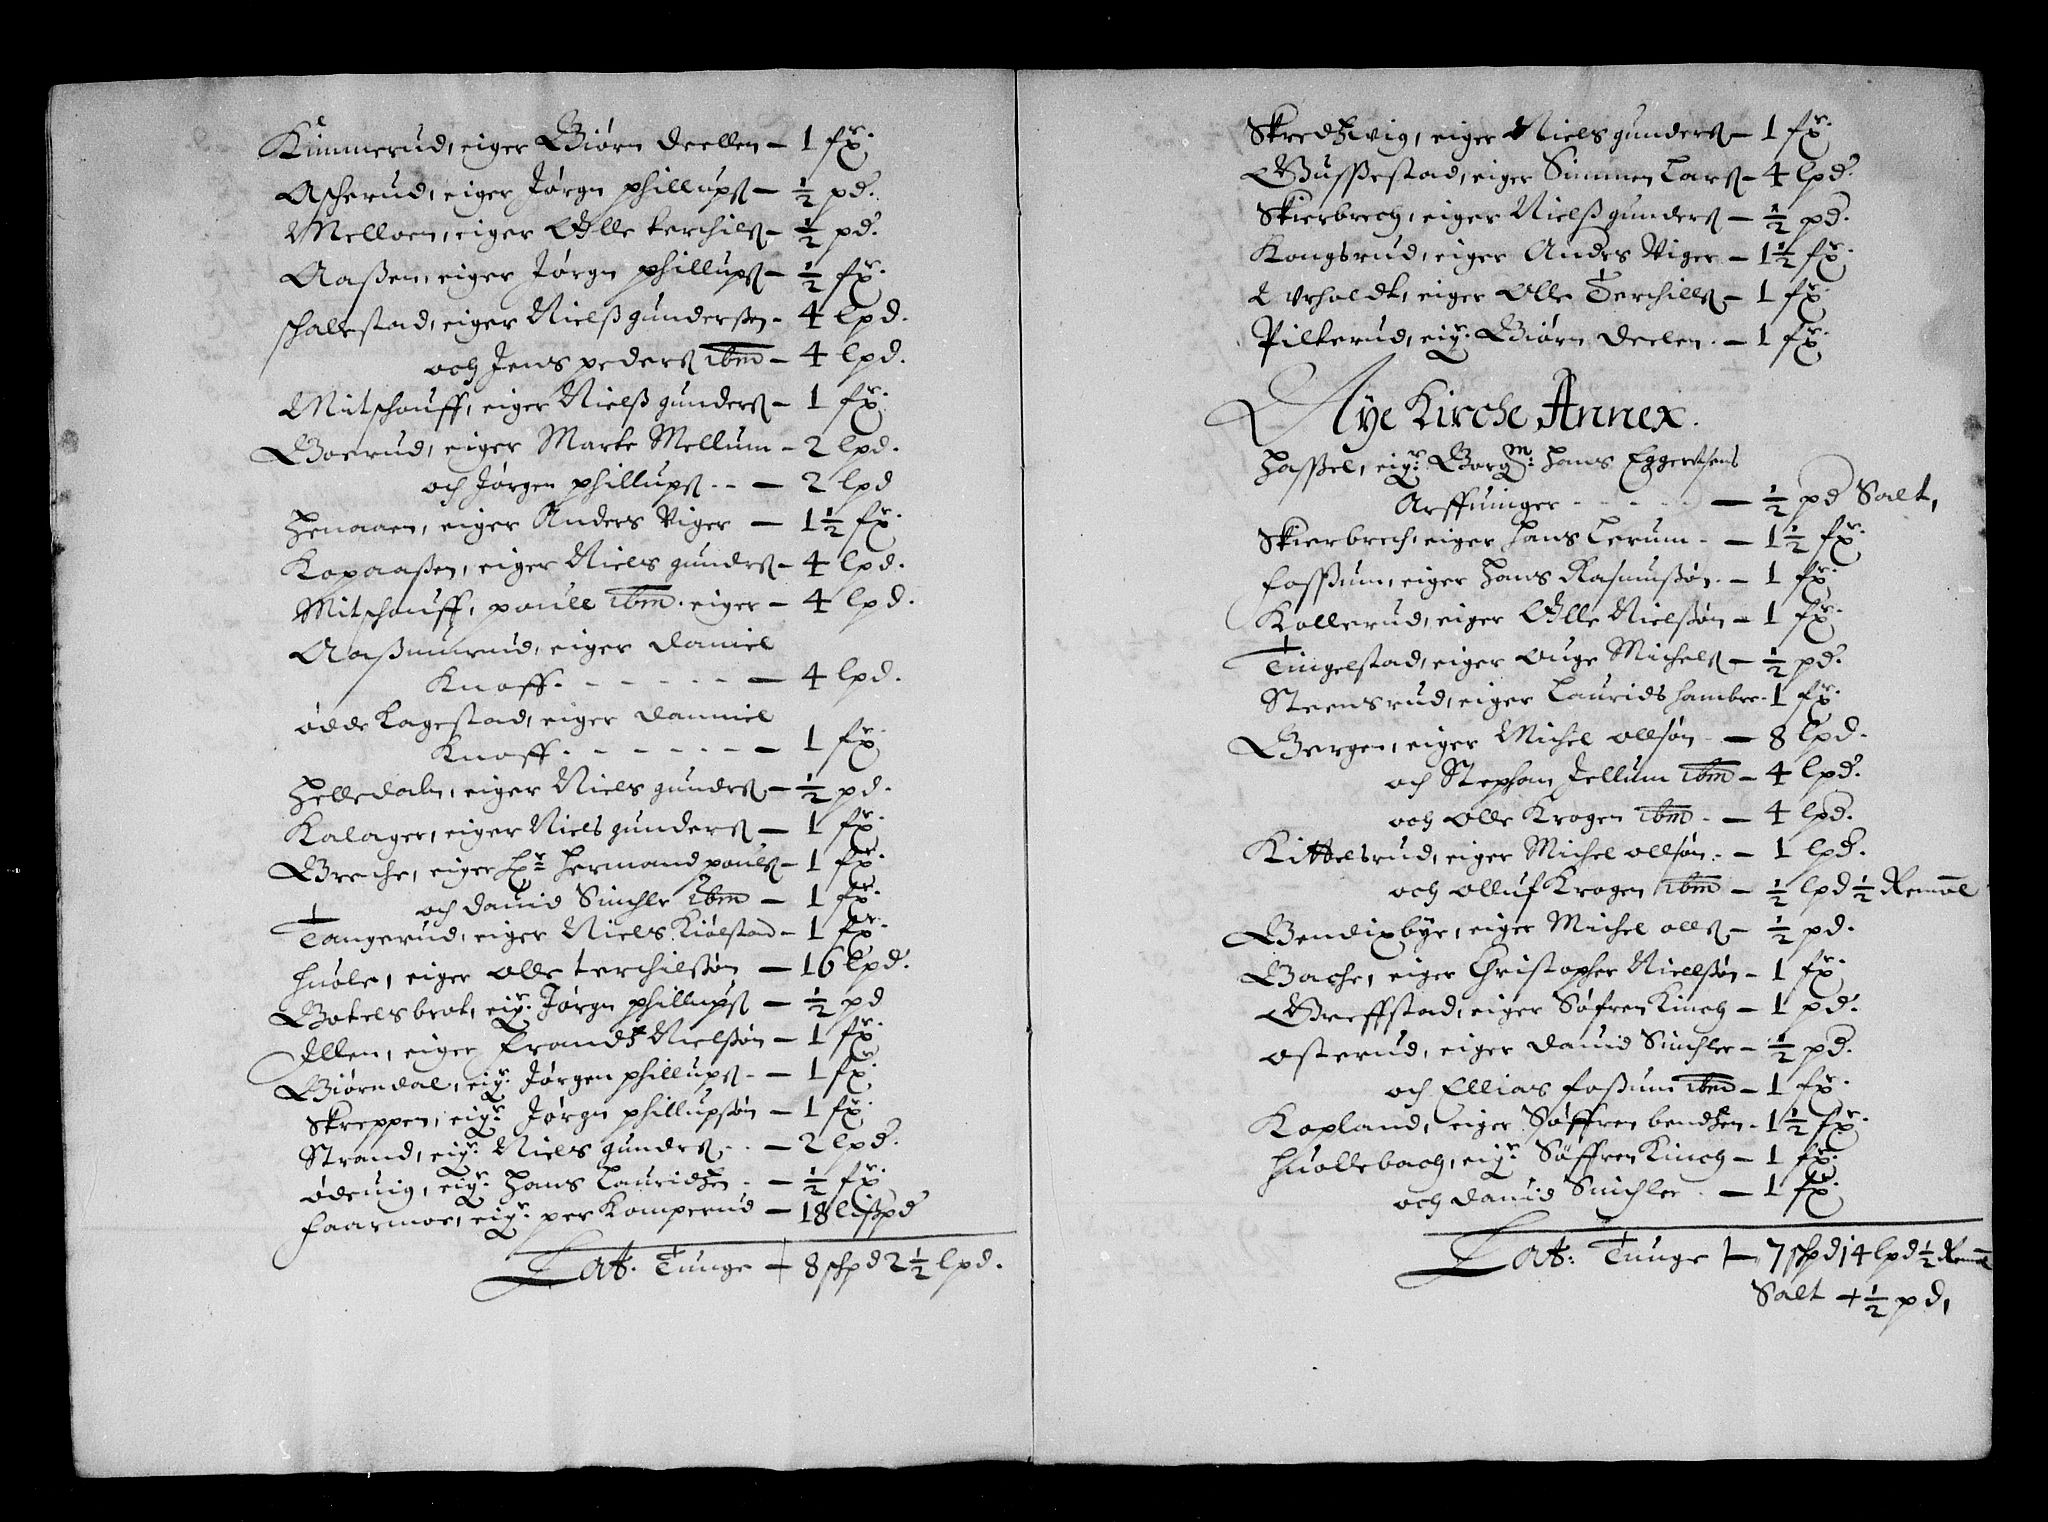 Kimmerud, eiger Biørn deellen – 1 fr:
Ascherud, eiger Jørgn phillupß – ½ pd.
Melloen, eiger Olle terchilß – ½ pd.
Aaßen, eiger Jørgn phillupß – ½ fr:
schallestad, eiger Nielß gunderßen – 4 lpd.
och Jens pederß ibm – 4 lpd.
Mitschouff, eiger Nielß gunderß – 1 fr:
Boerud, eiger Marte Mellum – 2 lpd.
och Jørgen phillupß – 2 lpd
Henaaen, eiger Anders Viger – 1½ fr:
Kopaaßen, eiger Niels gundrß – 4 lpd.
Mitschouff, pouell ibm. eiger – 4 lpd.
Aaßmunrud, eiger Daniel
Knoff. – 4 lpd.
ødde Lagestad, eiger Danniel
Knoff. – 1 fr:
Helledaln, eiger Niels gundrß – ½ pd.
Kalager, eiger Niels gunderß – 1 fr:
Breche, eiger Hr: Hermand poulß – 1 fr:
och Dauid Sinchler ibm – 1 fr:
Tangerud, eiger Niels Kiølstad – 1 fr:
Huole, eiger olle terchilßøn – 16 lpd.
Botelsbrot, eigr: Jørgn phillupß – ½ pd
Illen, eiger Frandtz Nielßøn – 1 fr:
Biørndal, eigr: Jørgen phillupß – 1 fr:
Skreppen, eigr: Jørgn phillupsøn – 1 fr:
Strand, eigr: Niels gundrß – 2 lpd.
ødeuig, eigr: Hans Lauridtzen – ½ fr:
Faarmoe, eigr: per Komperud – 18 lißpd
Lat: Tunge – 8 schpd 2½ lpd.
Skredtzwig, eiger Niels gunderß – 1 fr:
Bußestad, eiger Simmen Larß – 4 lpd.
Skierbrech, eiger Nielß gunderß – ½ pd.
Kongsrud, eiger Anders Viger – 1½ fr:
Urholdt, eiger Olle Terchillß – 1 fr:
Pilterud, eigr: Biørn Deelen – 1 fr:
Nye Kirche Annex.
Haßel, eigr: Borgm: Hans Eggertsens
Arffuinger – ½ pd Salt,
Skierbrech, eiger Hans Lerum – 1½ fr:
Foßum, eiger Hans Rasmußøn – 1 fr:
Kollerud, eiger Olle Nielßøn – 1 fr:
Tingelstad, eiger ouge Michelß – ½ pd.
Steensrud, eiger Laurids Hambre – 1 fr:
Bergen, eiger Michel ollsøn – 8 lpd.
och Stephan Jellum ibm – 4 lpd.
och Olle Krogen ibm – 4 lpd.
Kittelsrud, eiger Michel ollsøn – 1 lpd.
och olluf Krogen ibm – ½ lpd ½ Remøl
Bendixbye, eiger Michel ollß – ½ pd.
Bache, eiger Christopher Nielßøn – 1 fr:
Greffstad, eiger Søfren Kinch – 1 pd.
Osterud, eiger Dauid Sinchler – ½ pd.
och Ellias Foßum ibm – 1 fr:
Kopland, eiger Søffren bendtzen – 1½ fr:
Huollebach, eigr: Søffren Kinch – 1 fr:
och Dauid Sinchler – 1 fr:
Lat: Tunge – 7 schpd 14 lpd ½ Remøl
Salt – ½ pd,